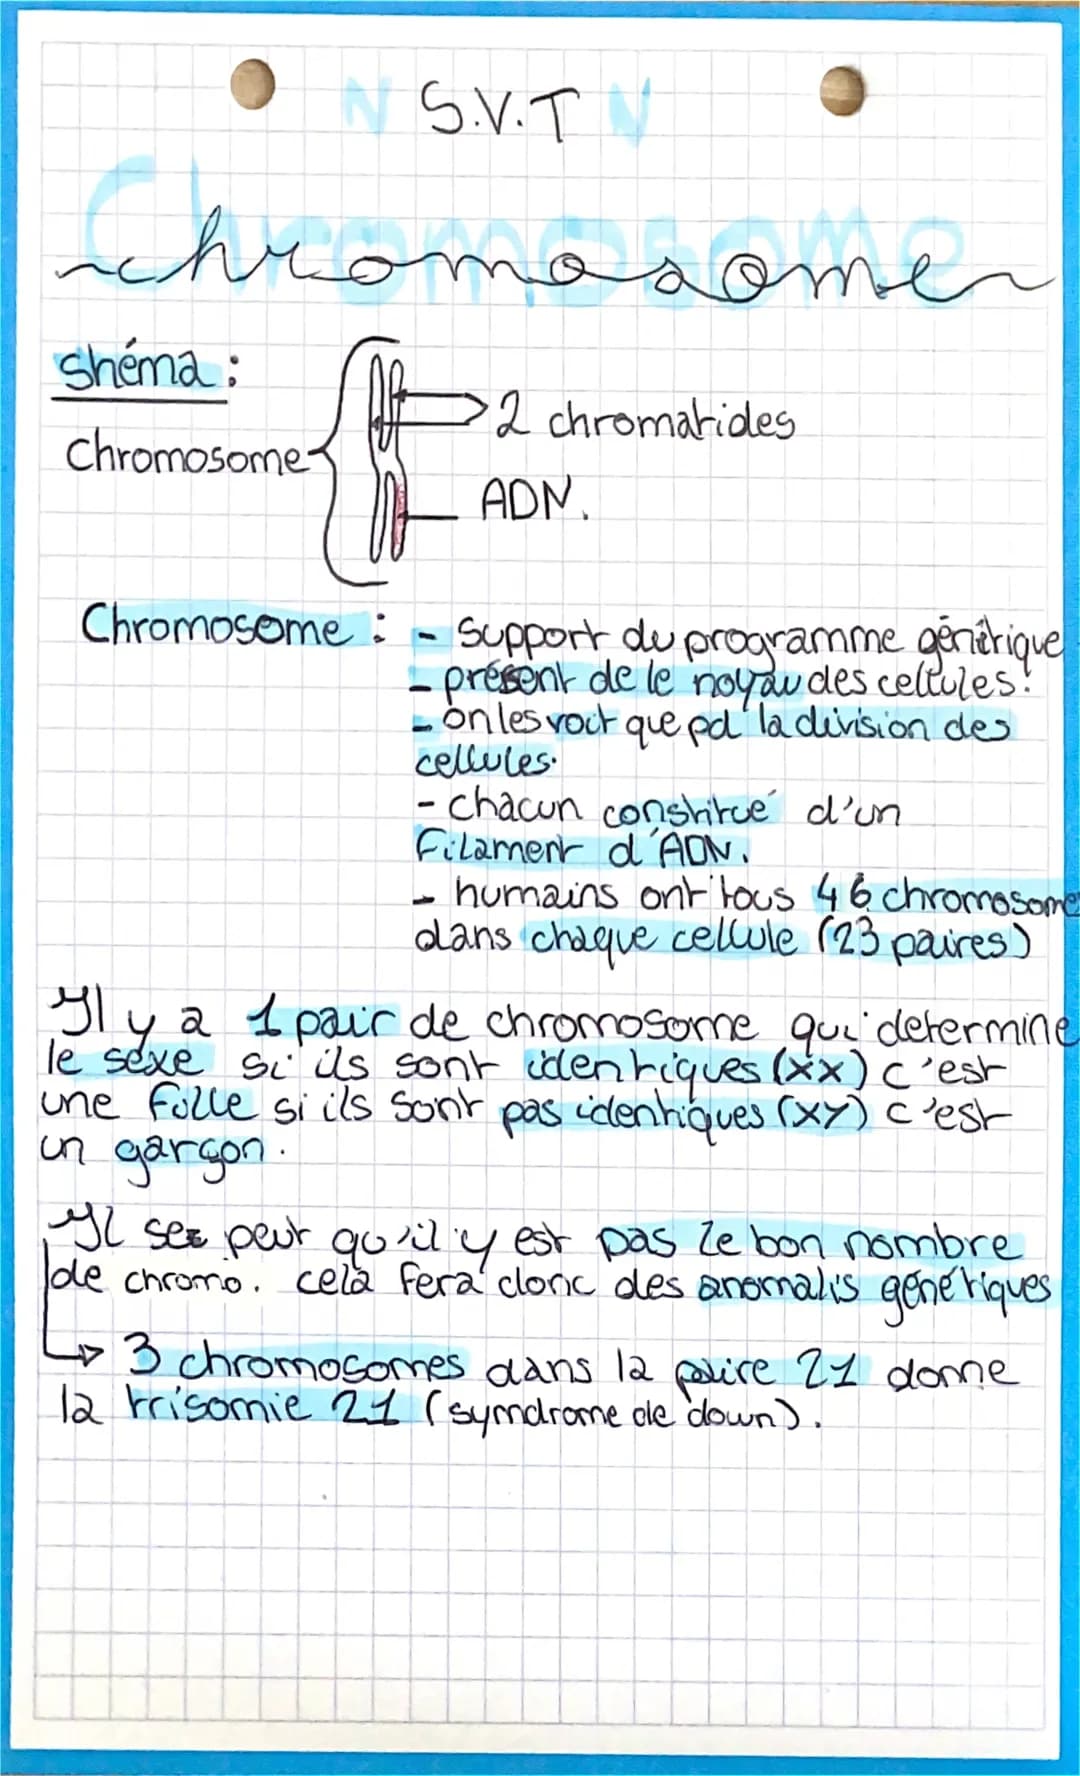 S.V.T
Chromosome
chromosome
shéma :
Chromosome
2 chromatides
ADN.
Chromosome : - support du programme génétique
- présent de le noyau des cellules.
- on les voit que pd la division des
cellules.
- chacun constitué d'un
Filament d'ADN.
- humains ont tous 46 chromosomes
dans chaque cellule (23 paires)
Il y a 1 pair de chromosome qui determine
le sexe si ils sont identiques (xx) c'est
une fille si ils sont pas identiques (xy) c'est
un garçon.
Il se peut qu'il y est pas le bon nombre
de chromo. cela fera donc des anomalis génétiques
→ 3 chromosomes dans la paire 21 donne
la trisomie 21 (symdrome de down).